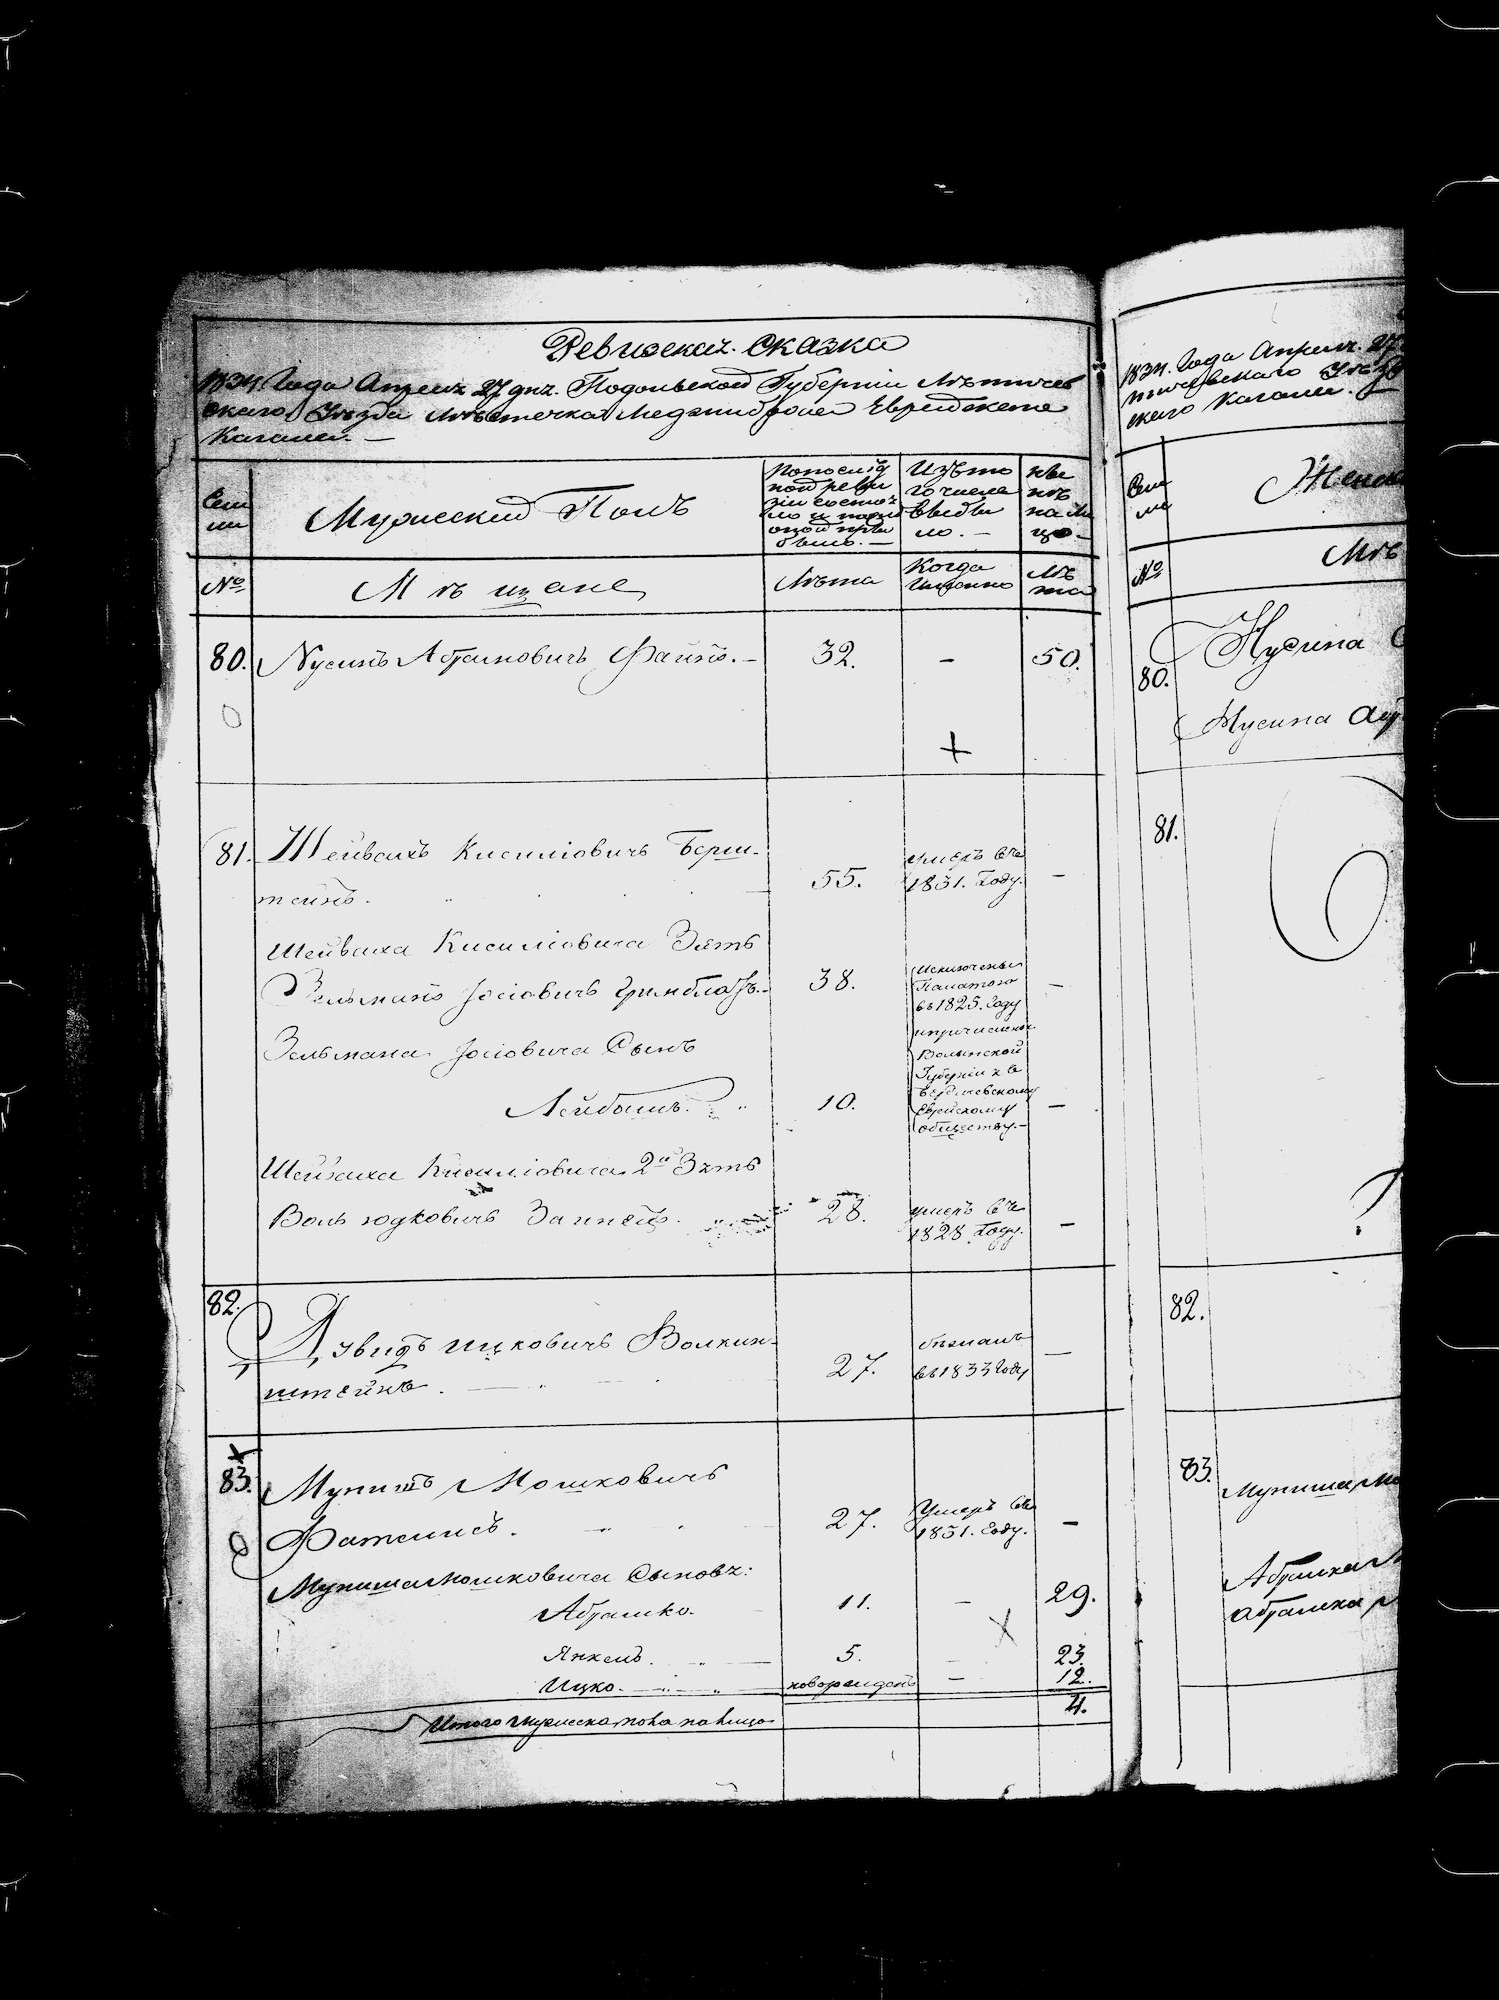 Ревизская Сказка
1834. Года Апреля 27 дня. Подольской Губерніи Лѣтичев
скаго Уѣзда Мѣстечка Меджибожа Еврейскаго
Кагала. —
Семьи
Мужескій Полъ
По послѣд
ной реви
зіи состоя
ло и послѣ
оной прибы
было. —
Изъ то
го числа
выбы
ло. —
ны
нѣ
на ли
цо —
№
Мѣщане
Лѣта
Когда
именно
Лѣ
та
80. Нусинъ Абрамовичъ Файнъ. — 32. — 50.
81. Шейвахъ Кисиліовичъ Берш-
тейнъ. 55. умеръ въ 1831. Году. —
Шейваха Кисиліовича Зять
Зельманъ Іосіовичъ Гринблатъ. — 38. —
Исключены
Палатою
въ 1825. Году
и причислены
Волынской
Губерніи къ
Бердичевскому
Еврейскому
обществу. —
Зельмана Іосіовича Сынъ
Лейбышъ. 10. —
Шейваха Кисиліовича 2й Зять
Воль Юдковичъ 28. умеръ въ 1828 Году. —
82. Давидъ Ицковичъ Волкин-
штейнъ. 27. бежалъ въ 1833 Году —
83. Мунишъ Мошковичъ
27. Умеръ въ 1831. Году. —
Муниша Мошковича Сыновя:
Абрамко. 11. — 29.
Янкель. 5. — 23.
Ицко. новорожденъ — 12.
Итого мужеска пола на лицо 4.
1834. Года Апреля. 27
тичевскаго Уѣзда
скаго Кагала.
Семьи
Женск
№
Мѣ
80. Нусина
Нусина
81.
82.
83. Муниша Мо
Абрамка
Абрамка